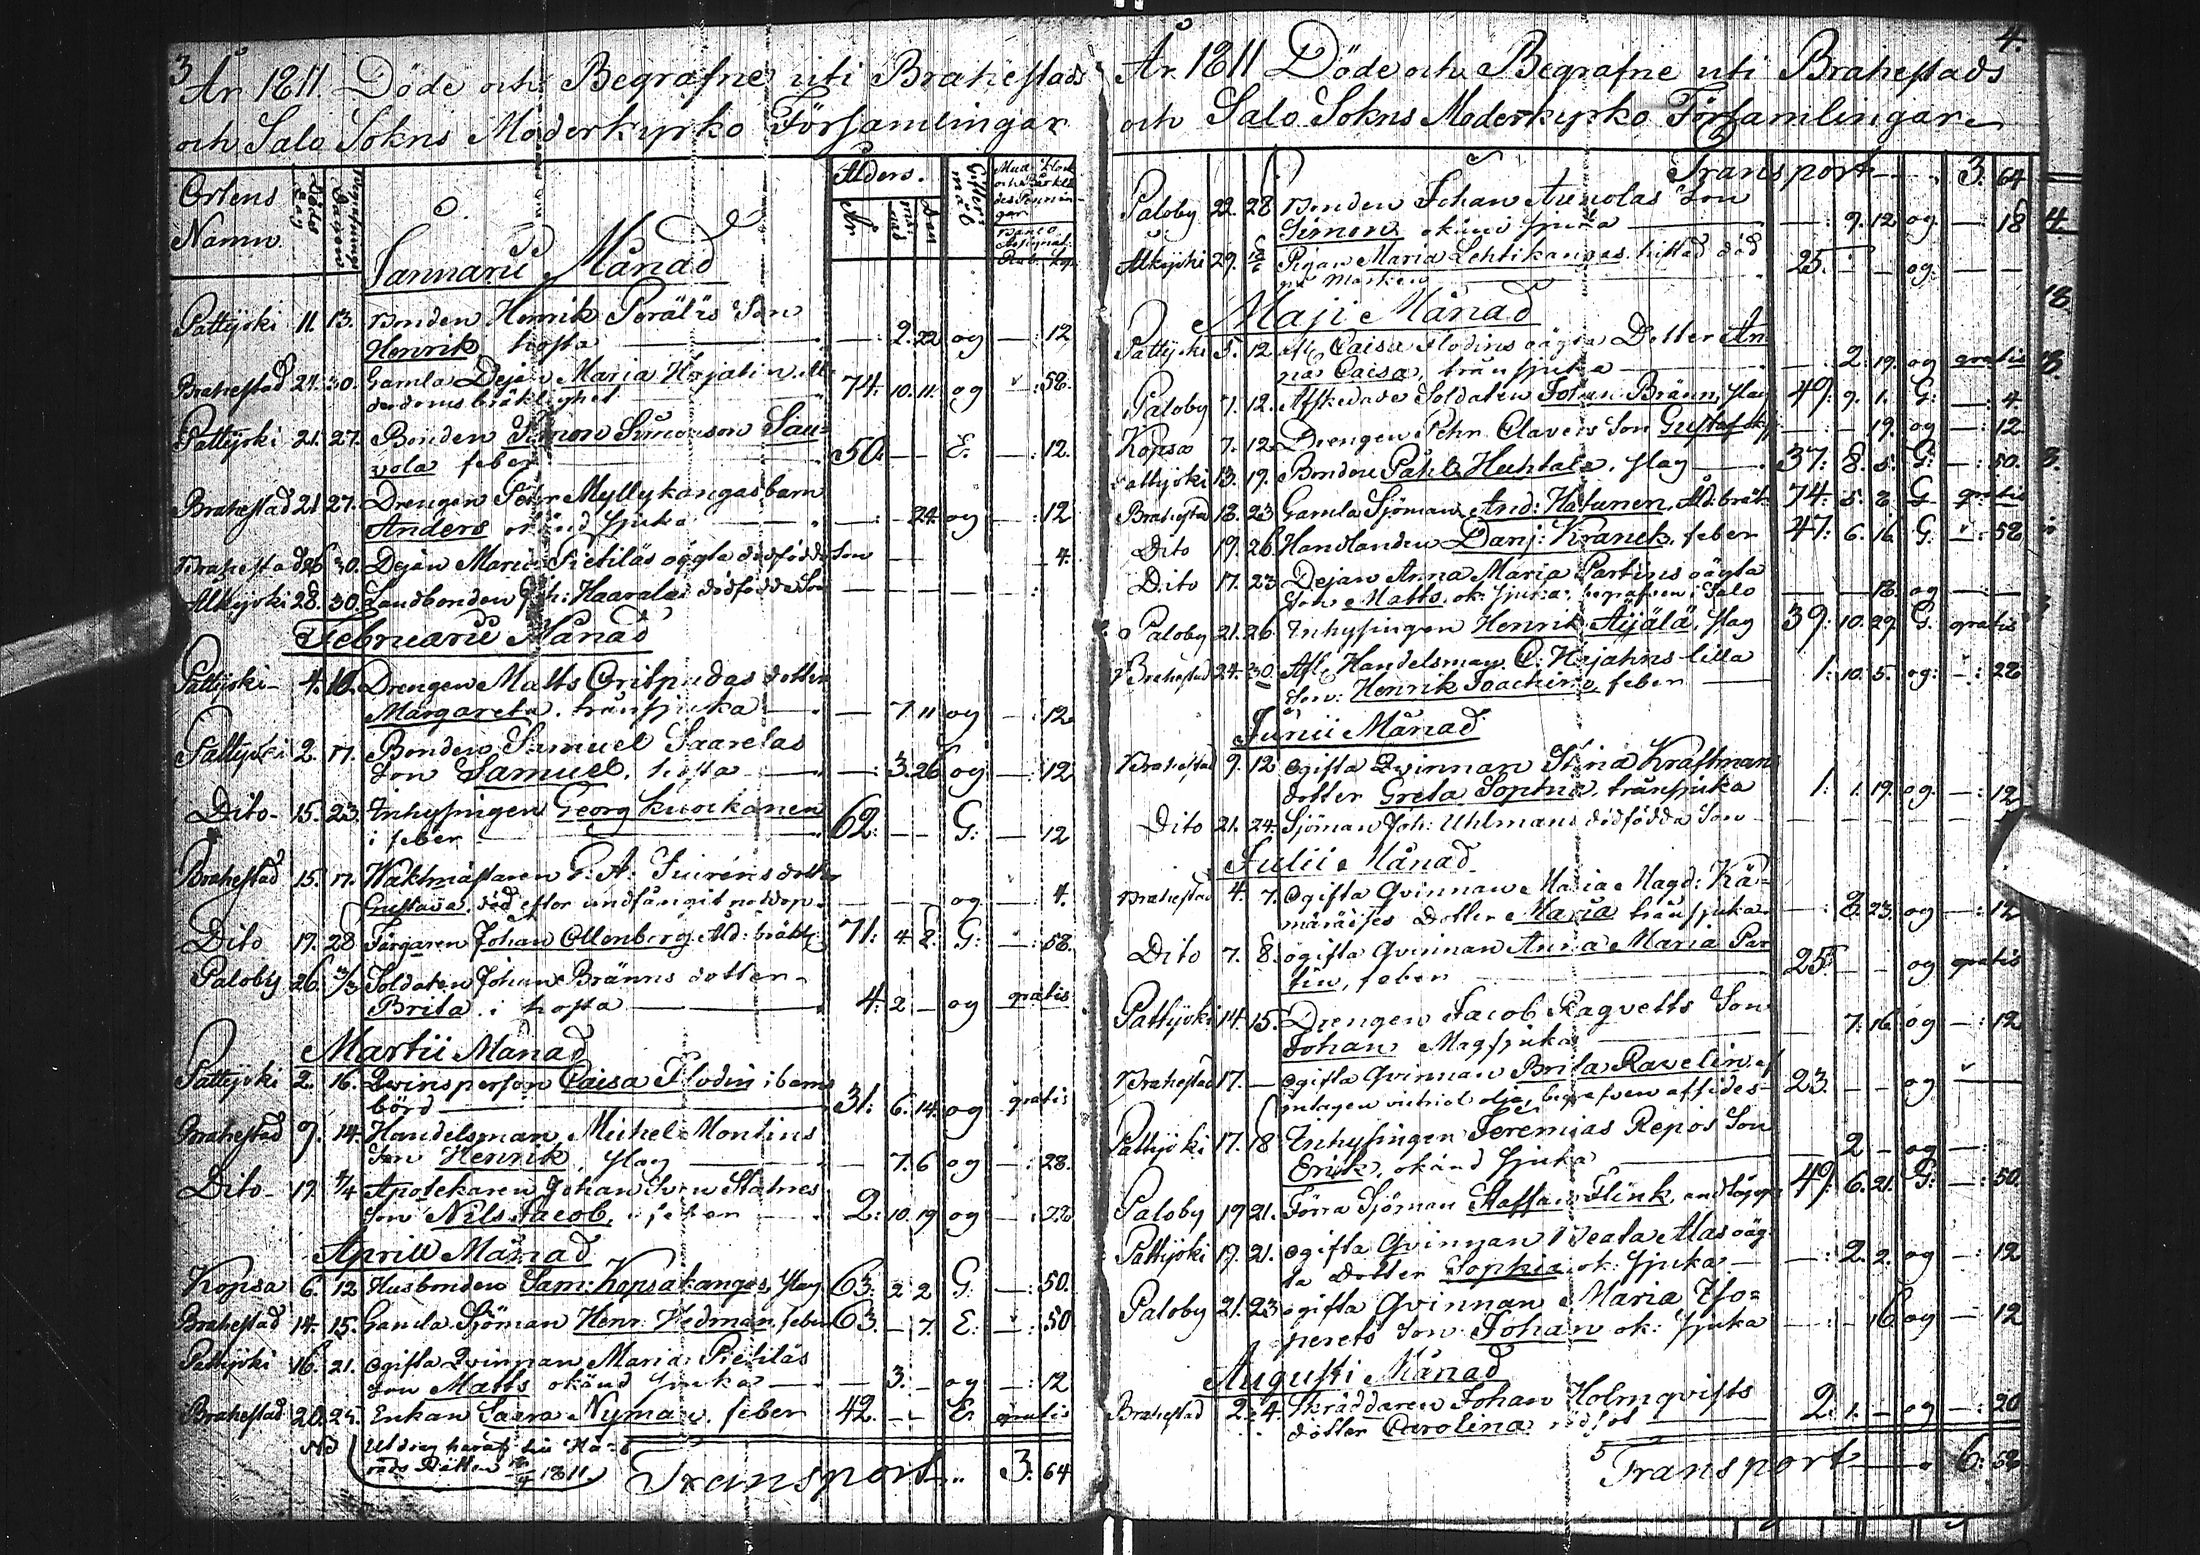 3
År 1811. Döde och Begrafne uti Brahestads
och Salo Sokns Moderkyrko Församlingar
Ortens Namn Döds dag Begrafnings dagen Ålders. År månad dar Gift
Januarii Månad
Pattijoki 11. 13. Bonden Henrik Peräläs Son
Henrik, hosta — : 2. 22 og — : 12
Brahestad 24. 30. Gamla Dejan Maria Hojatin, ål-
derdoms bräklighet 74. 10. 11. og : 58.
Pattijoki 21. 27. Bonden Simon Simonson Sau-
vola feber 50. — — E. — : 12.
Brahestad 21 27. Drengen Petr Myllykangas barn
Anders okänd sjuka — : — 24. og — : 12
Brahestad 26 30. Dejan Maria Pietiläs oägta dödfödde Son — — — 4.
Alkijoki 28. 30. Landbonden Joh: Haarala dödfödde Son — — — —
Februarii Månad
Pattijoki 4. 10. Drengen Matts Critpudas dotter
Margareta, trånsjuka — 7. 11 og — : 12
Pattijoki 2. 17. Bonden Samuel Saarelas
Son Samuel, hosta — : 3. 26 og — : 12
Dito 15. 23. Inhysingen Georg Kuoikanen
i feber 62: — — G: — 12
Brahestad 15. 17. Waktmästaren P. A. Tuirens dotter
Gustava, död efter undfångit noddop. — — — og — : 4.
Dito 19. 28 Färgaren Johan Ollenberg Åld: bräkl: 71: 4. 8. G: — : 58.
Paloby 26. 3/3 Soldaten Johan Bränns dotter
Brita, i hosta 4: 2 — og gratis
Martii Månad
Pattijoki 2. 16. Qvinsperson Caisa Flodin i barns
börd 31: 6. 14. og gratis
Brahestad 9. 14. Handelsman Michel Montins
Son Henrik, slag — 7. 6 og — : 28.
Dito 19. 4/4 Apotekaren Johan Sven
Son Nils Jacob, i feber 2: 10. 19 og — : 28
Aprill Månad
Kopsa 6. 12 Husbonden Sam: Kopsakangas, slag 63. 2 2 G: — : 50.
Brahestad 14. 15. Gamla Sjöman Henr. Hedman feber 63. — 7. E: : 50
Pattijoki 16. 21. Ogifta Qvinnan Maria Pietiläs
Son Matts okänd sjuka — 3. — og — : 12
Brahestad 20. 25. Enkan Saara Nyman, feber 42. — — E: gratis
NB Utdrag häraf till Hä-
rads Rätten 1811
Transport 3. 64
4.
År 1811 Döde och Begrafne uti Brahestads
och Salo Sokns Moderkyrko Församlingar
Transport 3. 64
Paloby 22. 28 Bonden Johan Aunolas Son
Simon okänd sjuka — : 9. 12 og — : 18
Alkijoki 29. Pigan Maria Lehtikangas hittad död
på marken 25. — — og. — —
Maji Månad
Pattijoki 5. 12 Afl. Caisa Flodins oägta Dotter An-
na Caisa, trånsjuka — : 2. 19. og gratis
Paloby 7. 12. Afskedade Soldaten Johan Bränn, slag 49: 9. 1. G: — : 4
Kopsa 7. 12 Drengen Pehr Clavers Son Gustaf — — 19. og — : 12
Pattijoki 13. 19. Bonden Pähl Huhtala, slag 37: 8. 5. G: — : 50.
Brahestad 18. 23 Gamla Sjöman And: Hatunen, Åld: bräk: 74: 5. 2. G gratis
Dito 19. 26 Handlanden Danj: Kranck, feber 47: 6. 16. G: : 58
Dito 17. 23 Dejan Anna Maria Partins oägta
Son Matts, ok: sjuka, begrafven i Salo — — 18. og — —
Paloby 21. 26. Inhysingen Henrik Äijälä, slag 39: 10. 29. G: gratis
Brahestad 24. 30. Afl. Handelsman C: Hojahns lilla
Son Henrik Joachim, feber 1: 10: 5. og: : 28
Junii Månad
Brahestad 9. 12 Ogifta Qvinnan Stina Kraftmans
dotter Greta Sophia, trånsjuka 1: 1. 19. og — : 12
Dito 21. 24. Sjöman Joh: Uhlmans dödfödda Son — — — — —
Julii Månad
Brahestad 4. 7. Ogifta Qvinnan Maria Magd: Kä-
Dotter Maria trånsjuka — : 8. 23. og — : 12
Dito 7. 8. ogifta Qvinnan Anna Maria Par
tin, feber 25. — — og gratis
Pattijoki 14. 15. Drengen Jacob Ragvetts Son
Johan, Magsjuka — 7. 16. og — : 12
Brahestad 17. — Ogifta Qvinnan Brita Ravelin, af
intagen victriol olja, begrafven affides 23. — — og —
Pattijoki 17. 18 Inhysingen Jeremias Repos Son
Erik, okänd sjuka — 2 — og — :
Paloby 19 21. Förra Sjöman Staffan Flink, andtäppa 49: 6. 21. G: — : 50.
Pattijoki 19. 21. Ogifta Qvinnan Beata Alas oäg-
ta Dotter Sophia ok: sjuka — : 2. 2. og — : 12
Paloby 21. 23 ogifta Qvinnan Maria Iso-
perets Son Johan ok: sjuka — : — 16 og — 12
Augusti Månad
Brahestad 2. 4. Skräddaren Johan Holmqvists
dotter Carolina rödsot 2: 1. — og — : 20
Transport 6: 58